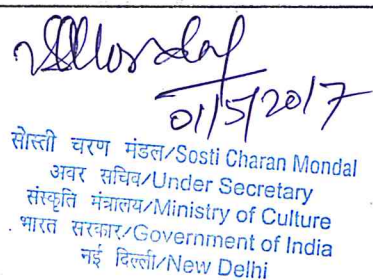 SCMondal
01/5/2017
सौस्ती चरण मंडल/Sosti Charan Mondal
अवर सचिव/Under Secretary
संस्कृति मंत्रालय/Ministry of Culture
भारत सरकार/Government of India
नई दिल्ली/New Delhi